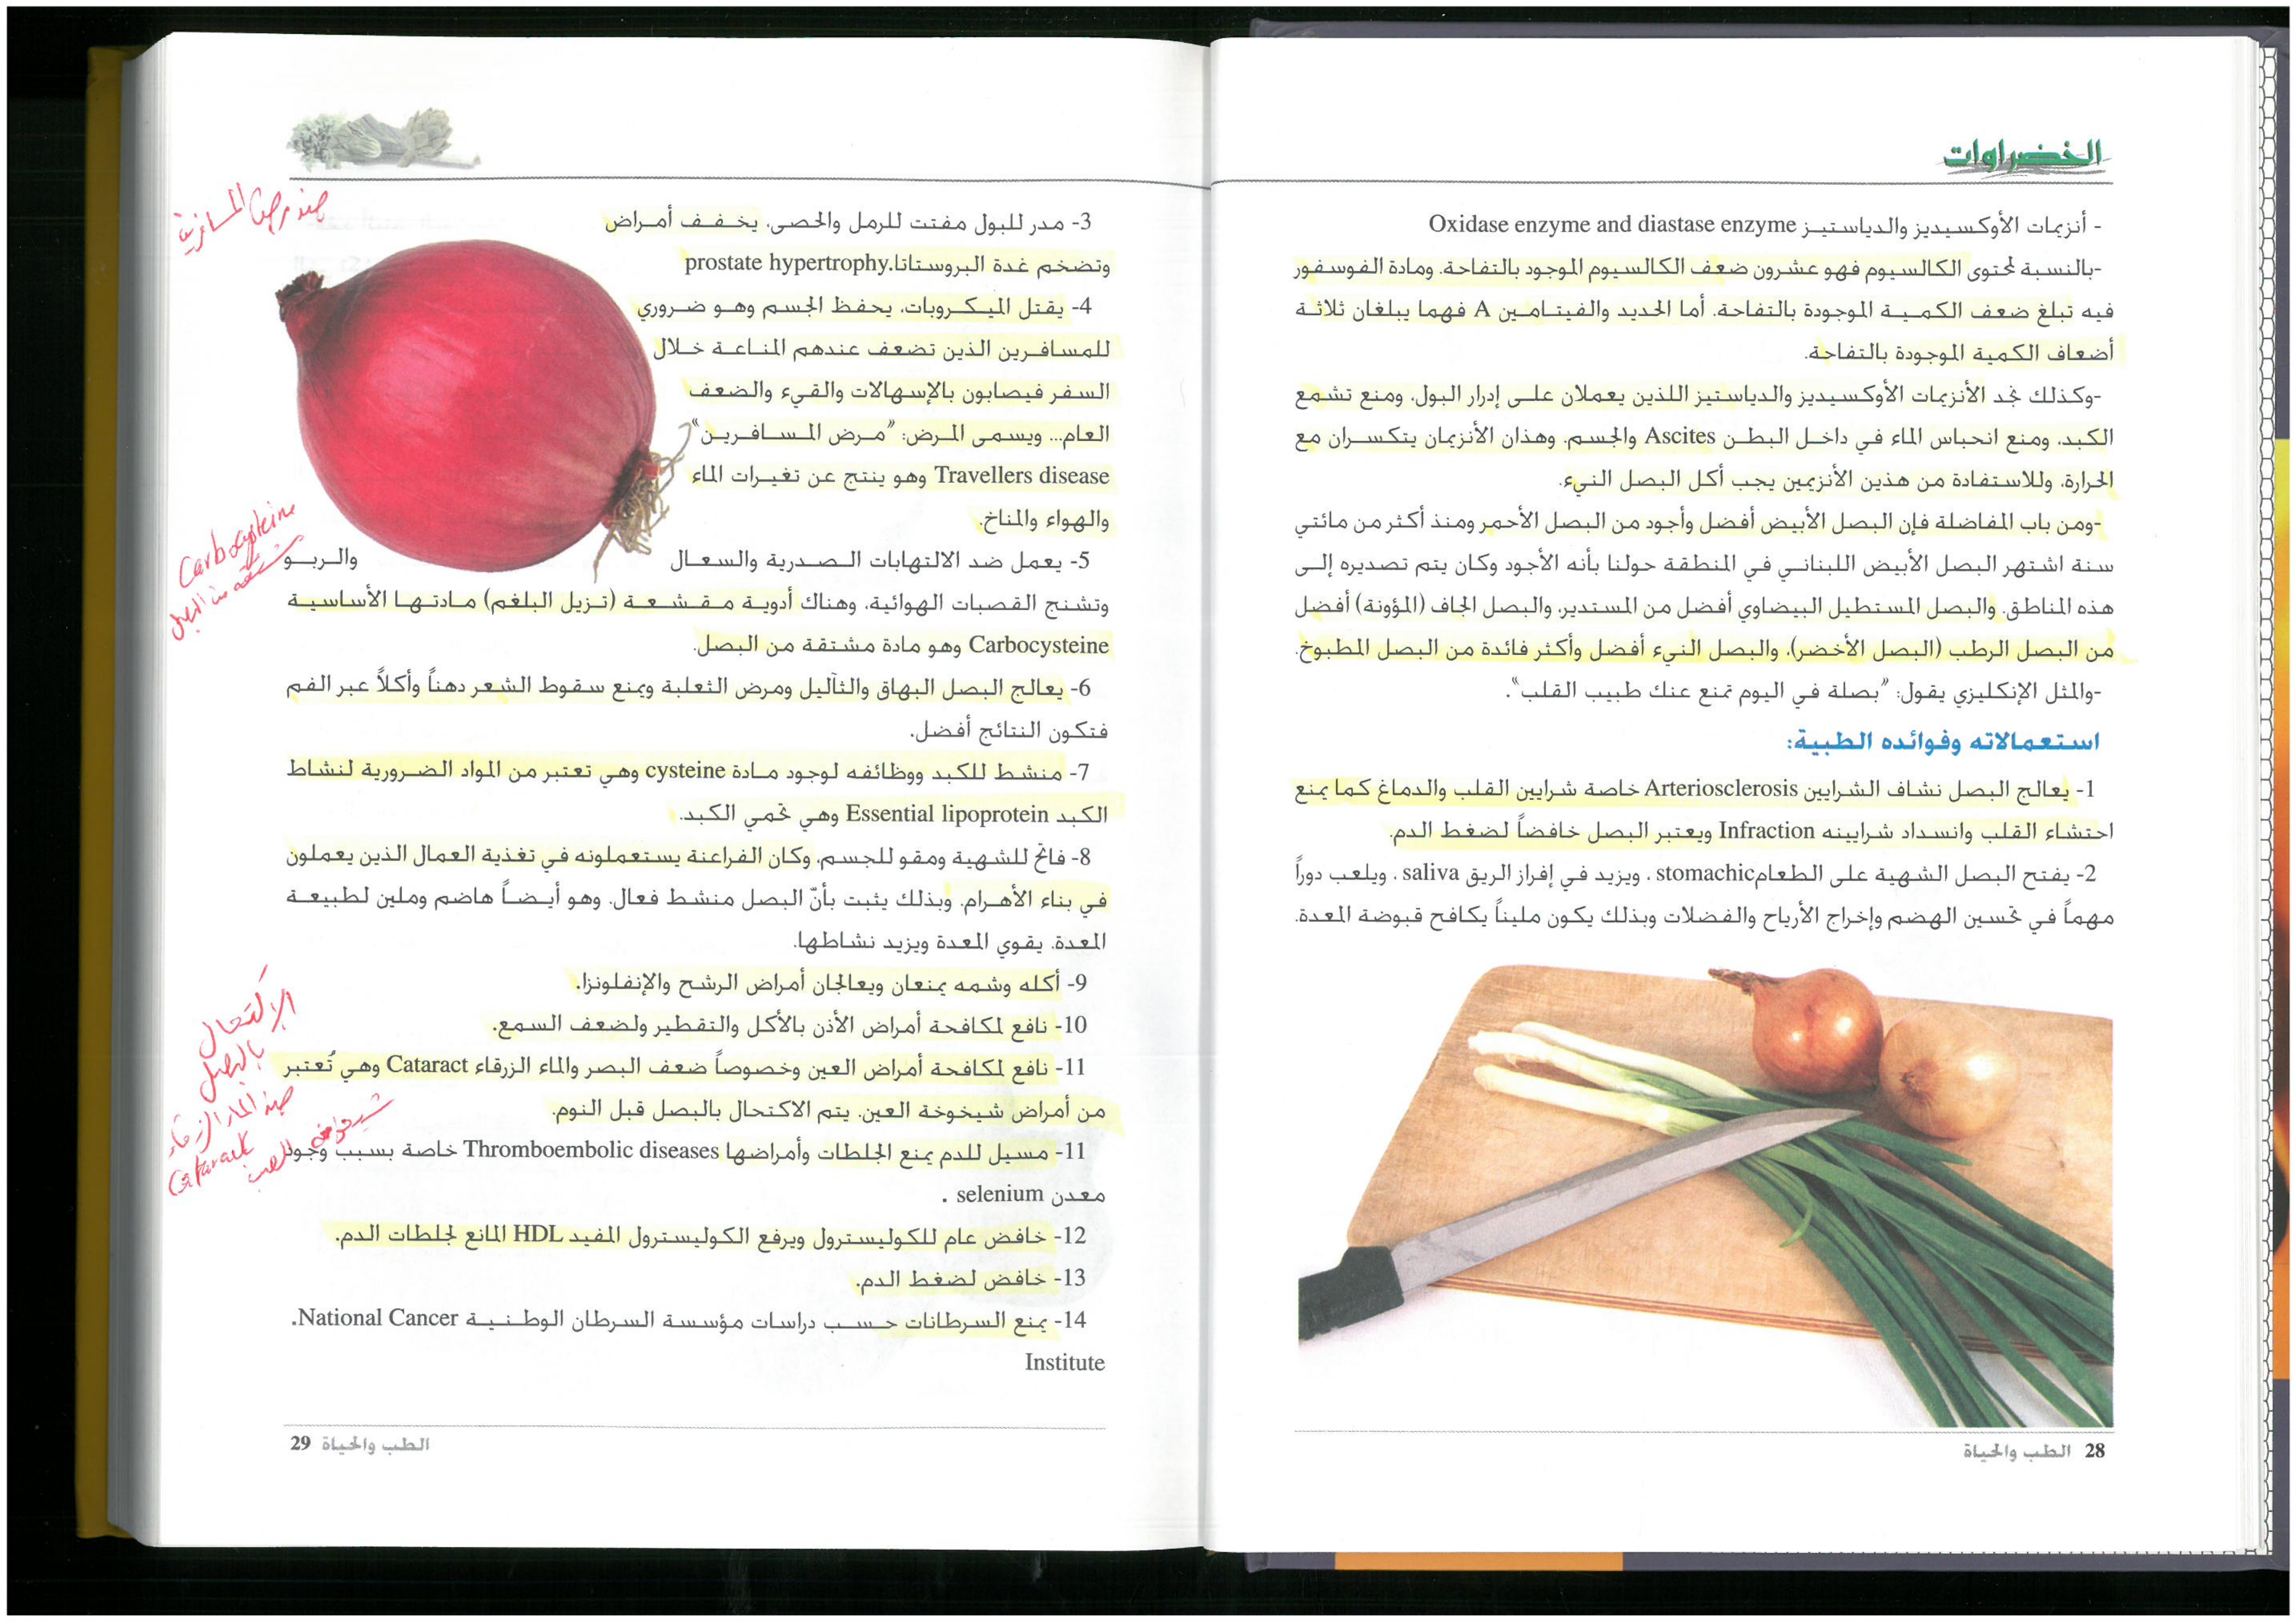 الخضراوات
- أنزيمات الأوكسيديز والدياستيز Oxidase enzyme and diastase enzyme
-بالنسبة لمحتوى الكالسيوم فهو عشرون ضعف الكالسيوم الموجود بالتفاحة. ومادة الفوسفور
فيه تبلغ ضعف الكمية الموجودة بالتفاحة. أما الحديد والفيتامين A فهما يبلغان ثلاثة
أضعاف الكمية الموجودة بالتفاحة.
-وكذلك نجد الأنزيمات الأوكسيديز والدياستيز اللذين يعملان على إدرار البول، ومنع تشمع
الكبد، ومنع انحباس الماء في داخل البطن Ascites والجسم. وهذان الأنزيمان يتكسران مع
الحرارة، وللاستفادة من هذين الأنزيمين يجب أكل البصل النيء.
-ومن باب المفاضلة فإن البصل الأبيض أفضل وأجود من البصل الأحمر ومنذ أكثر من مائتي
سنة اشتهر البصل الأبيض اللبناني في المنطقة حولنا بأنه الأجود وكان يتم تصديره إلى
هذه المناطق. والبصل المستطيل البيضاوي أفضل من المستدير، والبصل الجاف (المؤونة) أفضل
من البصل الرطب (البصل الأخضر)، والبصل النيء أفضل وأكثر فائدة من البصل المطبوخ.
-والمثل الإنكليزي يقول: "بصلة في اليوم تمنع عنك طبيب القلب".
استعمالاته وفوائده الطبية:
1- يعالج البصل نشاف الشرايين Arteriosclerosis خاصة شرايين القلب والدماغ كما يمنع
احتشاء القلب وانسداد شرايينه Infraction ويعتبر البصل خافضاً لضغط الدم.
2- يفتح البصل الشهية على الطعامstomachic ، ويزيد في إفراز الريق saliva ، ويلعب دوراً
مهماً في تحسين الهضم وإخراج الأرياح والفضلات وبذلك يكون مليناً يكافح قبوضة المعدة.
28 الطب والحياة
3- مدر للبول مفتت للرمل والحصى، يخفف أمراض
وتضخم غدة البروستاتا.prostate hypertrophy
4- يقتل الميكروبات، يحفظ الجسم وهو ضروري
للمسافرين الذين تضعف عندهم المناعة خلال
السفر فيصابون بالإسهالات والقيء والضعف
العام... ويسمى المرض: "مرض المسافرين"
Travellers disease وهو ينتج عن تغيرات الماء
والهواء والمناخ.
5- يعمل ضد الالتهابات الصدرية والسعال والربو
وتشنج القصبات الهوائية، وهناك أدوية مقشعة (تزيل البلغم) مادتها الأساسية
Carbocysteine وهو مادة مشتقة من البصل.
6- يعالج البصل البهاق والثآليل ومرض الثعلبة ويمنع سقوط الشعر دهناً وأكلاً عبر الفم
فتكون النتائج أفضل.
7- منشط للكبد ووظائفه لوجود مادة cysteine وهي تعتبر من المواد الضرورية لنشاط
الكبد Essential lipoprotein وهي تحمي الكبد.
8- فاتح للشهية ومقو للجسم، وكان الفراعنة يستعملونه في تغذية العمال الذين يعملون
في بناء الأهرام. وبذلك يثبت بأنّ البصل منشط فعال. وهو أيضاً هاضم وملين لطبيعة
المعدة. يقوي المعدة ويزيد نشاطها.
9- أكله وشمه يمنعان ويعالجان أمراض الرشح والإنفلونزا.
10- نافع لمكافحة أمراض الأذن بالأكل والتقطير ولضعف السمع.
11- نافع لمكافحة أمراض العين وخصوصاً ضعف البصر والماء الزرقاء Cataract وهي تُعتبر
من أمراض شيخوخة العين. يتم الاكتحال بالبصل قبل النوم.
11- مسيل للدم يمنع الجلطات وأمراضها Thromboembolic diseases خاصة بسبب وجود
معدن selenium .
12- خافض عام للكوليسترول ويرفع الكوليسترول المفيد HDL المانع لجلطات الدم.
13- خافض لضغط الدم.
14- يمنع السرطانات حسب دراسات مؤسسة السرطان الوطنية National Cancer.
Institute
الطب والحياة 29
Carbocysteine
مشتقة من البصل
الإكتحال
بالبصل
ضد الماء الزرقاء